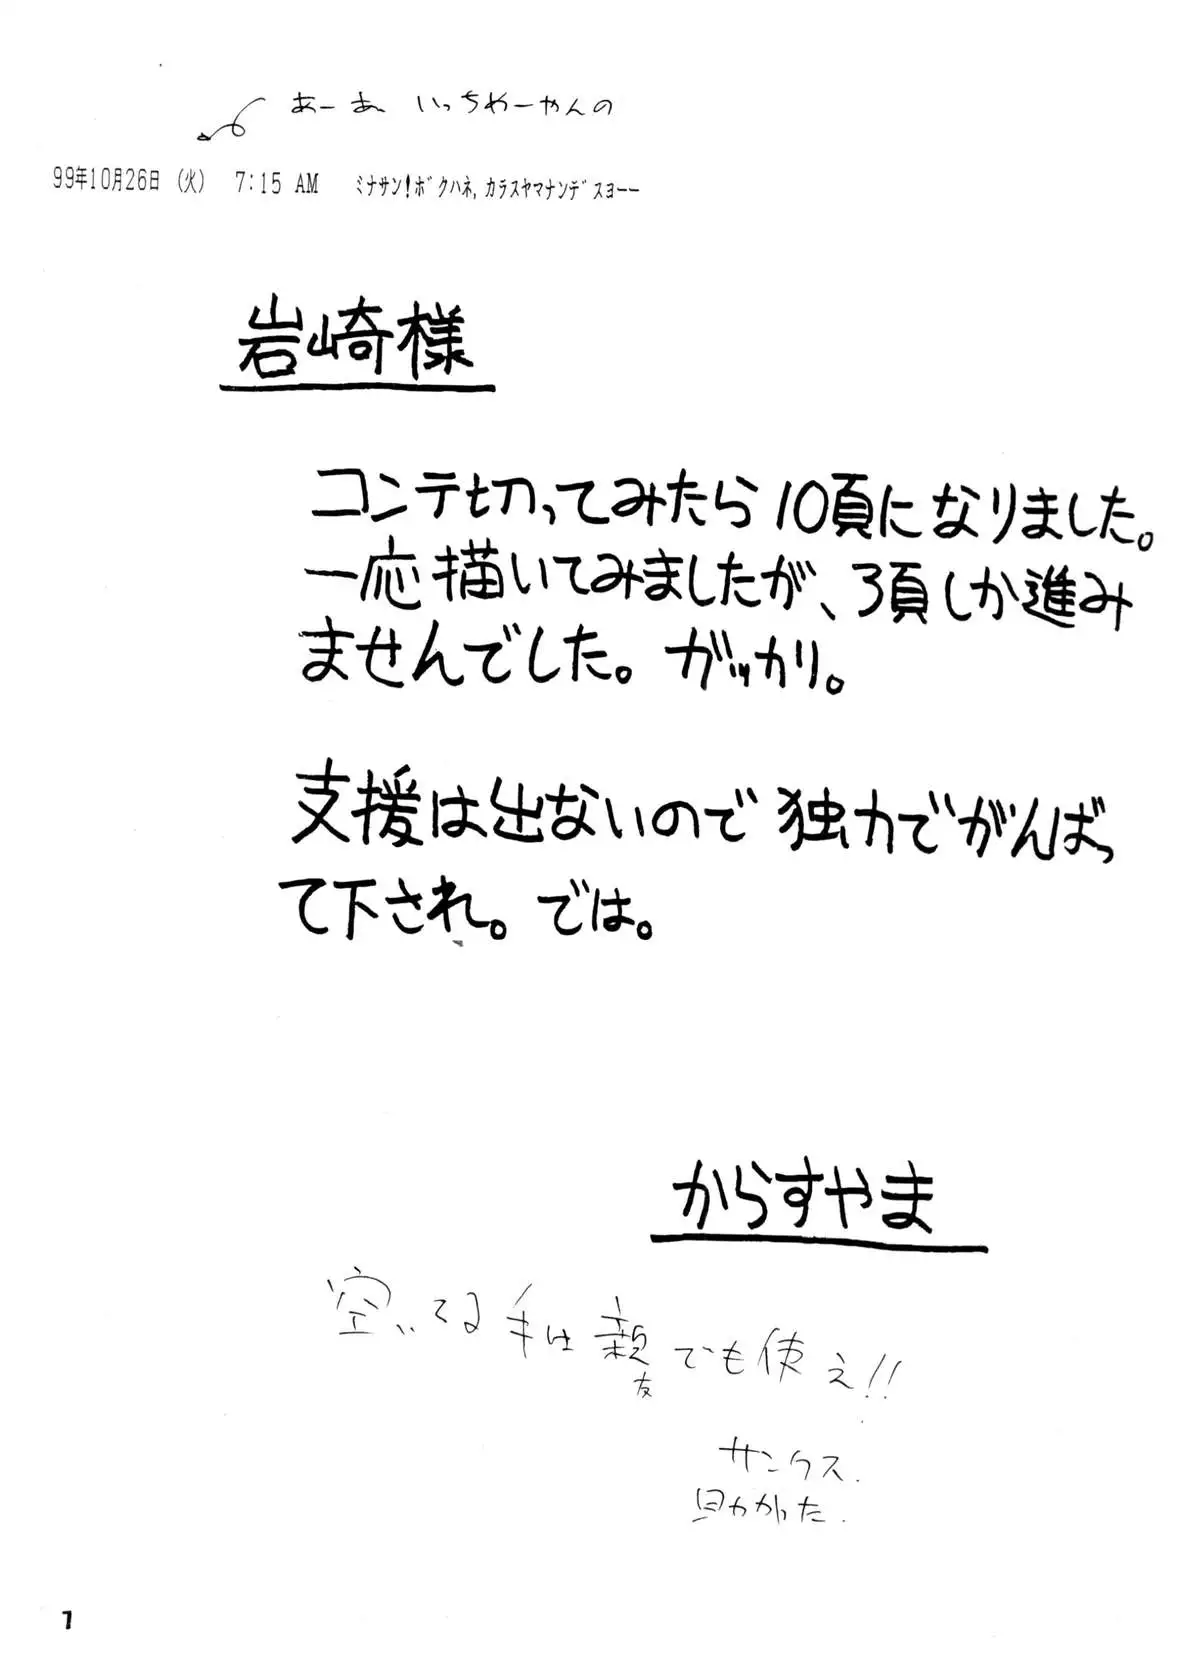 あーあ いっちゃーやんの
99年10月26日 (火) 7:15 AM ﾐﾅｻﾝ!ﾎﾞｸﾊﾈ,ｶﾗｽﾔﾏﾅﾝﾃﾞｽﾖーー
岩崎様
コンテ切ってみたら10頁になりました。
一応描いてみましたが、3頁しか進み
ませんでした。ガッカリ。
支援は出ないので独力でがんばっ
て下され。では。
からすやま
空いてる手は親でも使え!!
友
サンクス.
助かった.
7